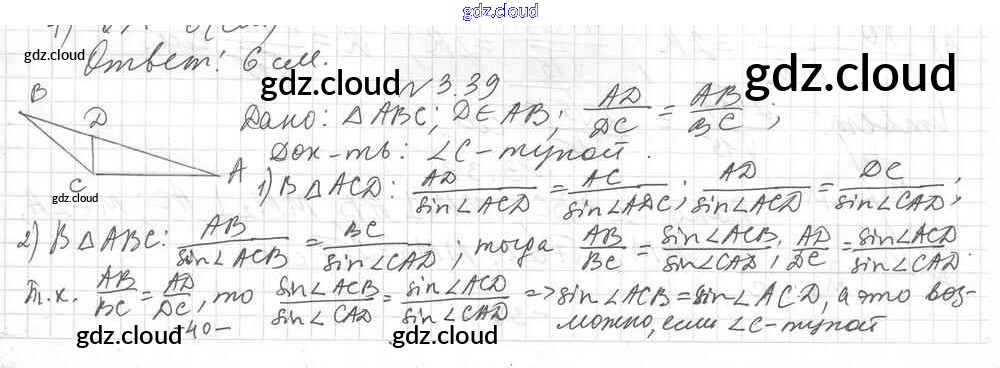 gdz.cloud
gdz.cloud
Ответ: 6 см.
gdz.cloud
gdz.cloud
№ 3.39
B
D
C
A
gdz.cloud
Дано: △ABC; D∈AB; AD/DC = AB/BC;
Док-ть: ∠C - тупой.
1) В △ACD: AD/sin∠ACD = AC/sin∠ADC; AD/sin∠ACD = DC/sin∠CAD;
2) В △ABC: AB/sin∠ACB = BC/sin∠CAD; тогда AB/BC = sin∠ACB/sin∠CAD, AD/DC = sin∠ACD/sin∠CAD.
Т.к. AB/BC = AD/DC, то sin∠ACB/sin∠CAD = sin∠ACD/sin∠CAD => sin∠ACB = sin∠ACD, а это воз-
можно, если ∠C - тупой
-40-
gdz.cloud
gdz.cloud
gdz.cloud